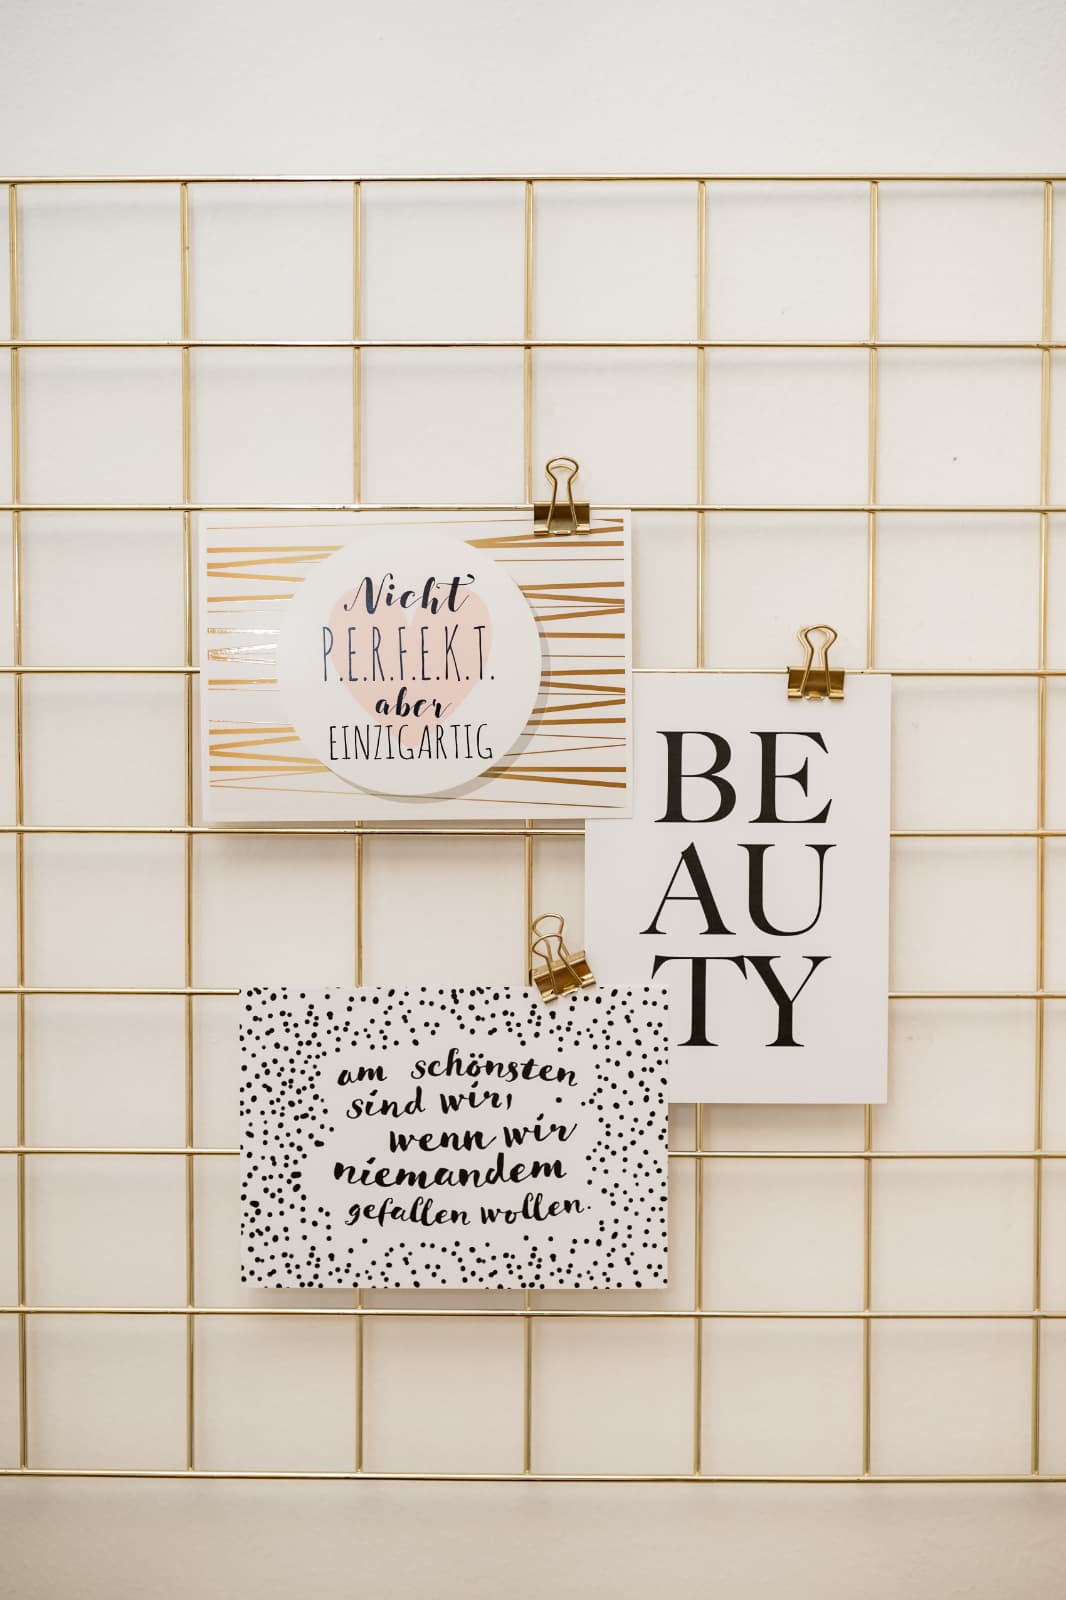 Nicht
P.E.R.F.E.K.T.
aber
EINZIGARTIG
BE
AU
TY
am schönsten
sind wir,
wenn wir
niemandem
gefallen wollen.